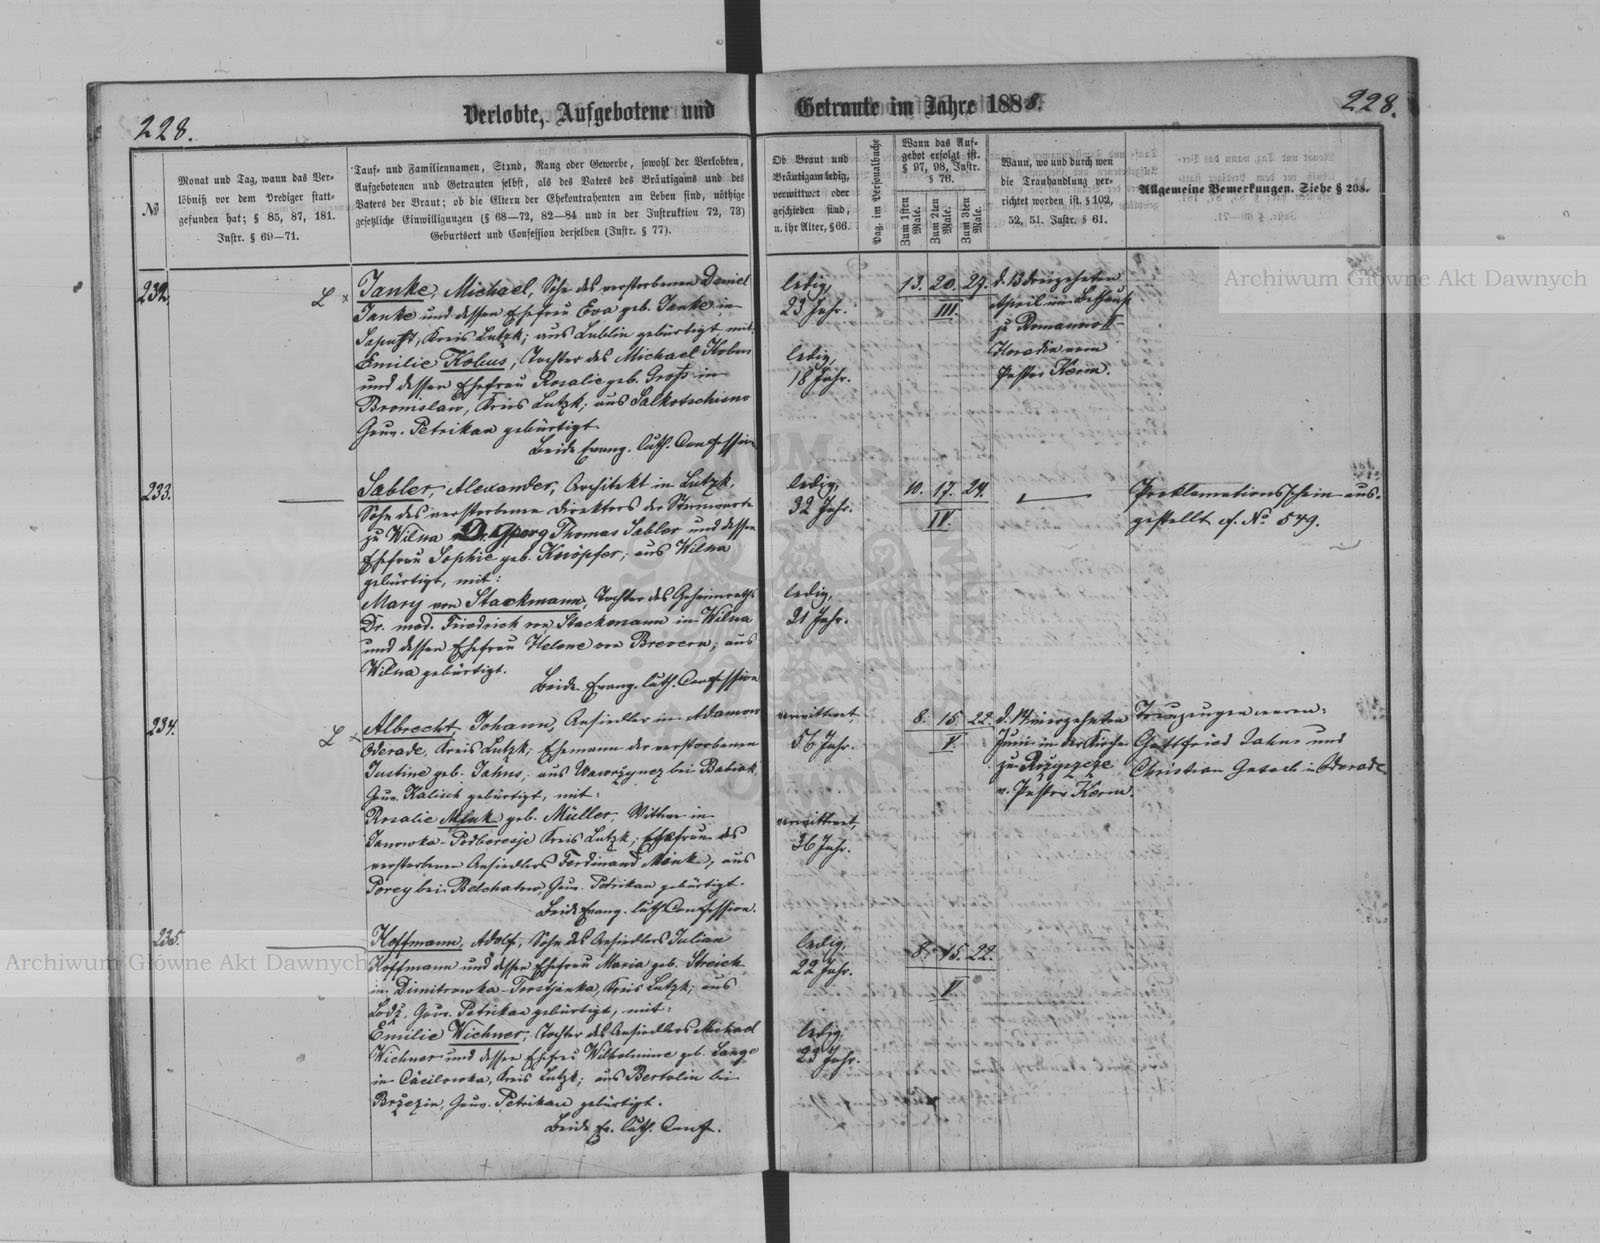 228.
Verlobte, Aufgebotene und
Getraute im Jahre 1888.
228.
№
Monat und Tag, wann das Ver-
löbniß vor dem Prediger statt-
gefunden hat; § 85, 87, 181.
Instr. § 69—71.
Tauf- und Familiennamen, Stand, Rang oder Gewerbe, sowohl der Verlobten,
Aufgebotenen und Getrauten selbst, als des Vaters des Bräutigams und des
Vaters der Braut; ob die Eltern der Ehekontrahenten am Leben sind, nöthige
gesetzliche Einwilligungen (§ 68—72, 82—84 und in der Instruktion 72, 73)
Geburtsort und Confession derselben (Instr. § 77).
Ob Braut und
Bräutigam ledig,
verwittwet oder
geschieden sind,
u. ihr Alter, § 66.
Pag. im Personalbuche
Wann das Auf-
gebot erfolgt ist.
§ 97, 98, Instr.
§ 76.
Zum 1sten Male.
Zum 2ten Male.
Zum 3ten Male.
Wann, wo und durch wen
die Trauhandlung ver-
richtet worden ist. § 102,
52, 51. Instr. § 61.
Allgemeine Bemerkungen. Siehe § 208.
232.
Janke, Michael, Sohn des verstorbenen Daniel
Janke und dessen Ehefrau Eva geb. Janke in
Kreis Lutzk; aus Lublin gebürtigt mit
Emilie Kobus, Tochter des Michael Kobus
und dessen Ehefrau Rosalie geb. Groß in
Bronislaw, Kreis Lutzk; aus
Gouv. Petrikau gebürtigt.
Beide Evang. luth. Confession
ledig,
23 Jahr.
ledig,
18 Jahr.
13. 20. 27.
III.
d. 13 dreizehnten
April im Bethause
zu Romanow II
von
Pastor Kerm.
233.
Sabler, Alexander, Architekt in Lutzk,
Sohn des verstorbenen Direktors der Sternwarte
zu Wilna Dr. Georg Thomas Sabler und dessen
Ehefrau Sophie geb. Knöpfer; aus Wilna
gebürtigt, mit:
Mary von Stackmann, Tochter des Geheimraths
Dr. med. Friedrich von Stackmann in Wilna
und dessen Ehefrau Helene von Brevern; aus
Wilna gebürtigt.
Beide Evang. luth. Confession
ledig,
32 Jahr.
ledig,
21 Jahr.
10. 17. 24.
IV.
Proklamationsschein aus-
gestellt cf. No. 549.
234.
Albrecht, Johann, Ansiedler in Adamow
Kreis Lutzk; Ehemann der verstorbenen
Justine geb. Jahns; aus Wawrżynez bei Babiak
Gouv. Kalisch gebürtigt, mit:
Rosalie Mink geb. Müller, Wittwe in
Janowka-Podberesje Kreis Lutzk; Ehefrau des
verstorbenen Ansiedlers Ferdinand Mink, aus
Porey bei Belchatow, Gouv. Petrikau gebürtigt.
Beide Evang. luth. Confession.
verwittwet
56 Jahr.
verwittwet,
36 Jahr.
8. 15. 22.
V.
d. 14 vierzehnten
Juni in der Kirche
zu Rożyszcze
v. Pastor Kerm.
Trauzeugen waren:
Gottfried Jahns und
Christian in
235.
Hoffmann, Adolf, Sohn des Ansiedlers Julian
Hoffmann und dessen Ehefrau Maria geb. Streich
in Dimitrowka-Trostjanka, Kreis Lutzk; aus
Lodz, Gouv. Petrikau gebürtigt, mit:
Emilie Wichner, Tochter des Ansiedlers Michael
Wichner und dessen Ehefrau Wilhelmine geb. Lange
in Cäcilowka, Kreis Lutzk; aus Bertolin bei
Brzezin, Gouv. Petrikau gebürtigt.
Beide Ev. luth. Conf.
ledig,
22 Jahr.
ledig,
23 Jahr.
8. 15. 22.
V.
Archiwum Główne Akt Dawnych
Archiwum Główne Akt Dawnych